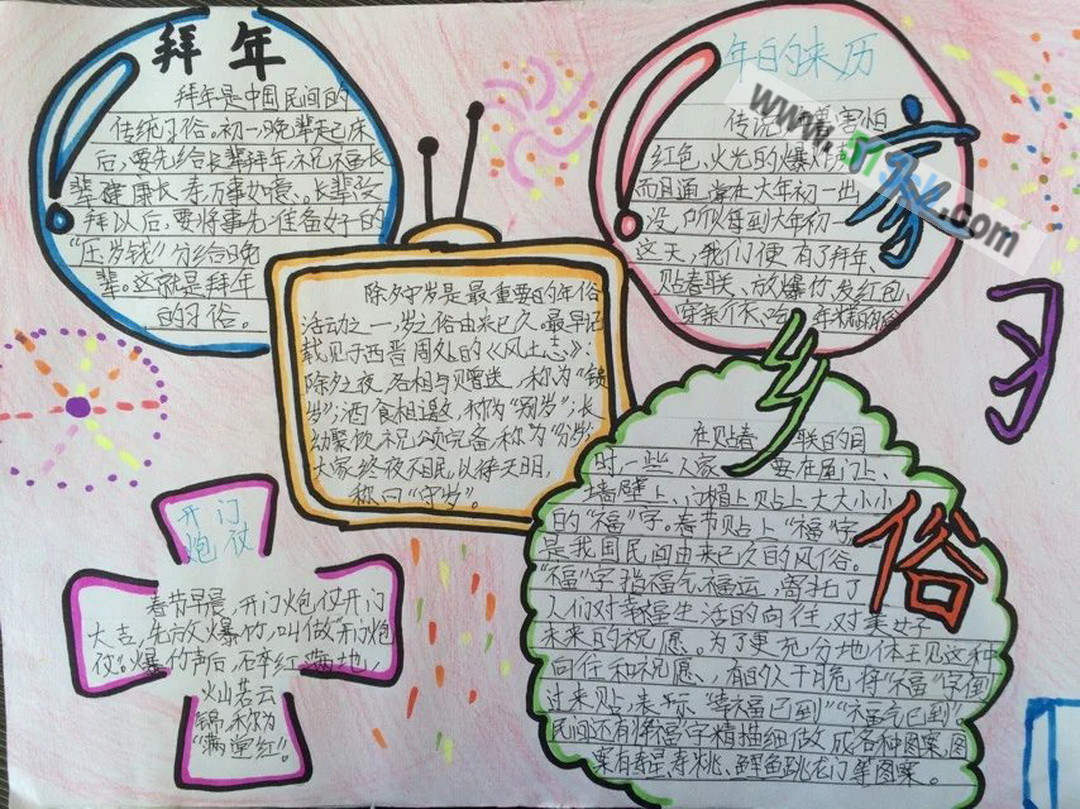 拜年
拜年是中国民间的
传统习俗。初一晚辈起床
后,要先给长辈拜年,祝福长
辈健康长寿,万事如意。长辈受
拜以后,要将事先准备好的
“压岁钱”分给晚
辈。这就是拜年
的习俗。
年的来历
传说 害怕
红色、火光的爆炸
而且通常在大年初一出
没,所以每到大年初一
这天,我们便有了拜年、
贴春联、放爆竹,发红包,
穿 年糕
www.513ok.com
家
乡
习
俗
除夕守岁是最重要的年俗
活动之一,岁之俗由来已久。最早记
载见于西晋周处的《风土志》:
除夕之夜,各相与赠送,称为“馈
岁”;酒食相邀,称为“别岁”;长
幼聚饮,祝颂完备,称为“分岁;
大家终夜不眠,以待天明,
称曰“守岁”。
在贴春联的同
时,一些人家要在屋门上、
墙壁上、门楣上贴上大大小小
的“福”字。春节贴上“福”字,
是我国民间由来已久的风俗。
“福”字指福气、福运,寄托了
人们对幸福生活的向往,对美好
未来的祝愿。为了更充分地体现这种
向往和祝愿,有的人干脆将“福”字倒
过来贴,表示“幸福已到”“福气已到”。
民间还有将福字精描细做成各种图案,图
案有寿星、寿桃、鲤鱼跳龙门等图案。
开门
炮仗
春节早晨,开门炮仗开门
大吉,先放爆竹,叫做“开门炮
仗”。爆竹声后,碎红满地,
火灿若云
锦,称为
“满堂红”。